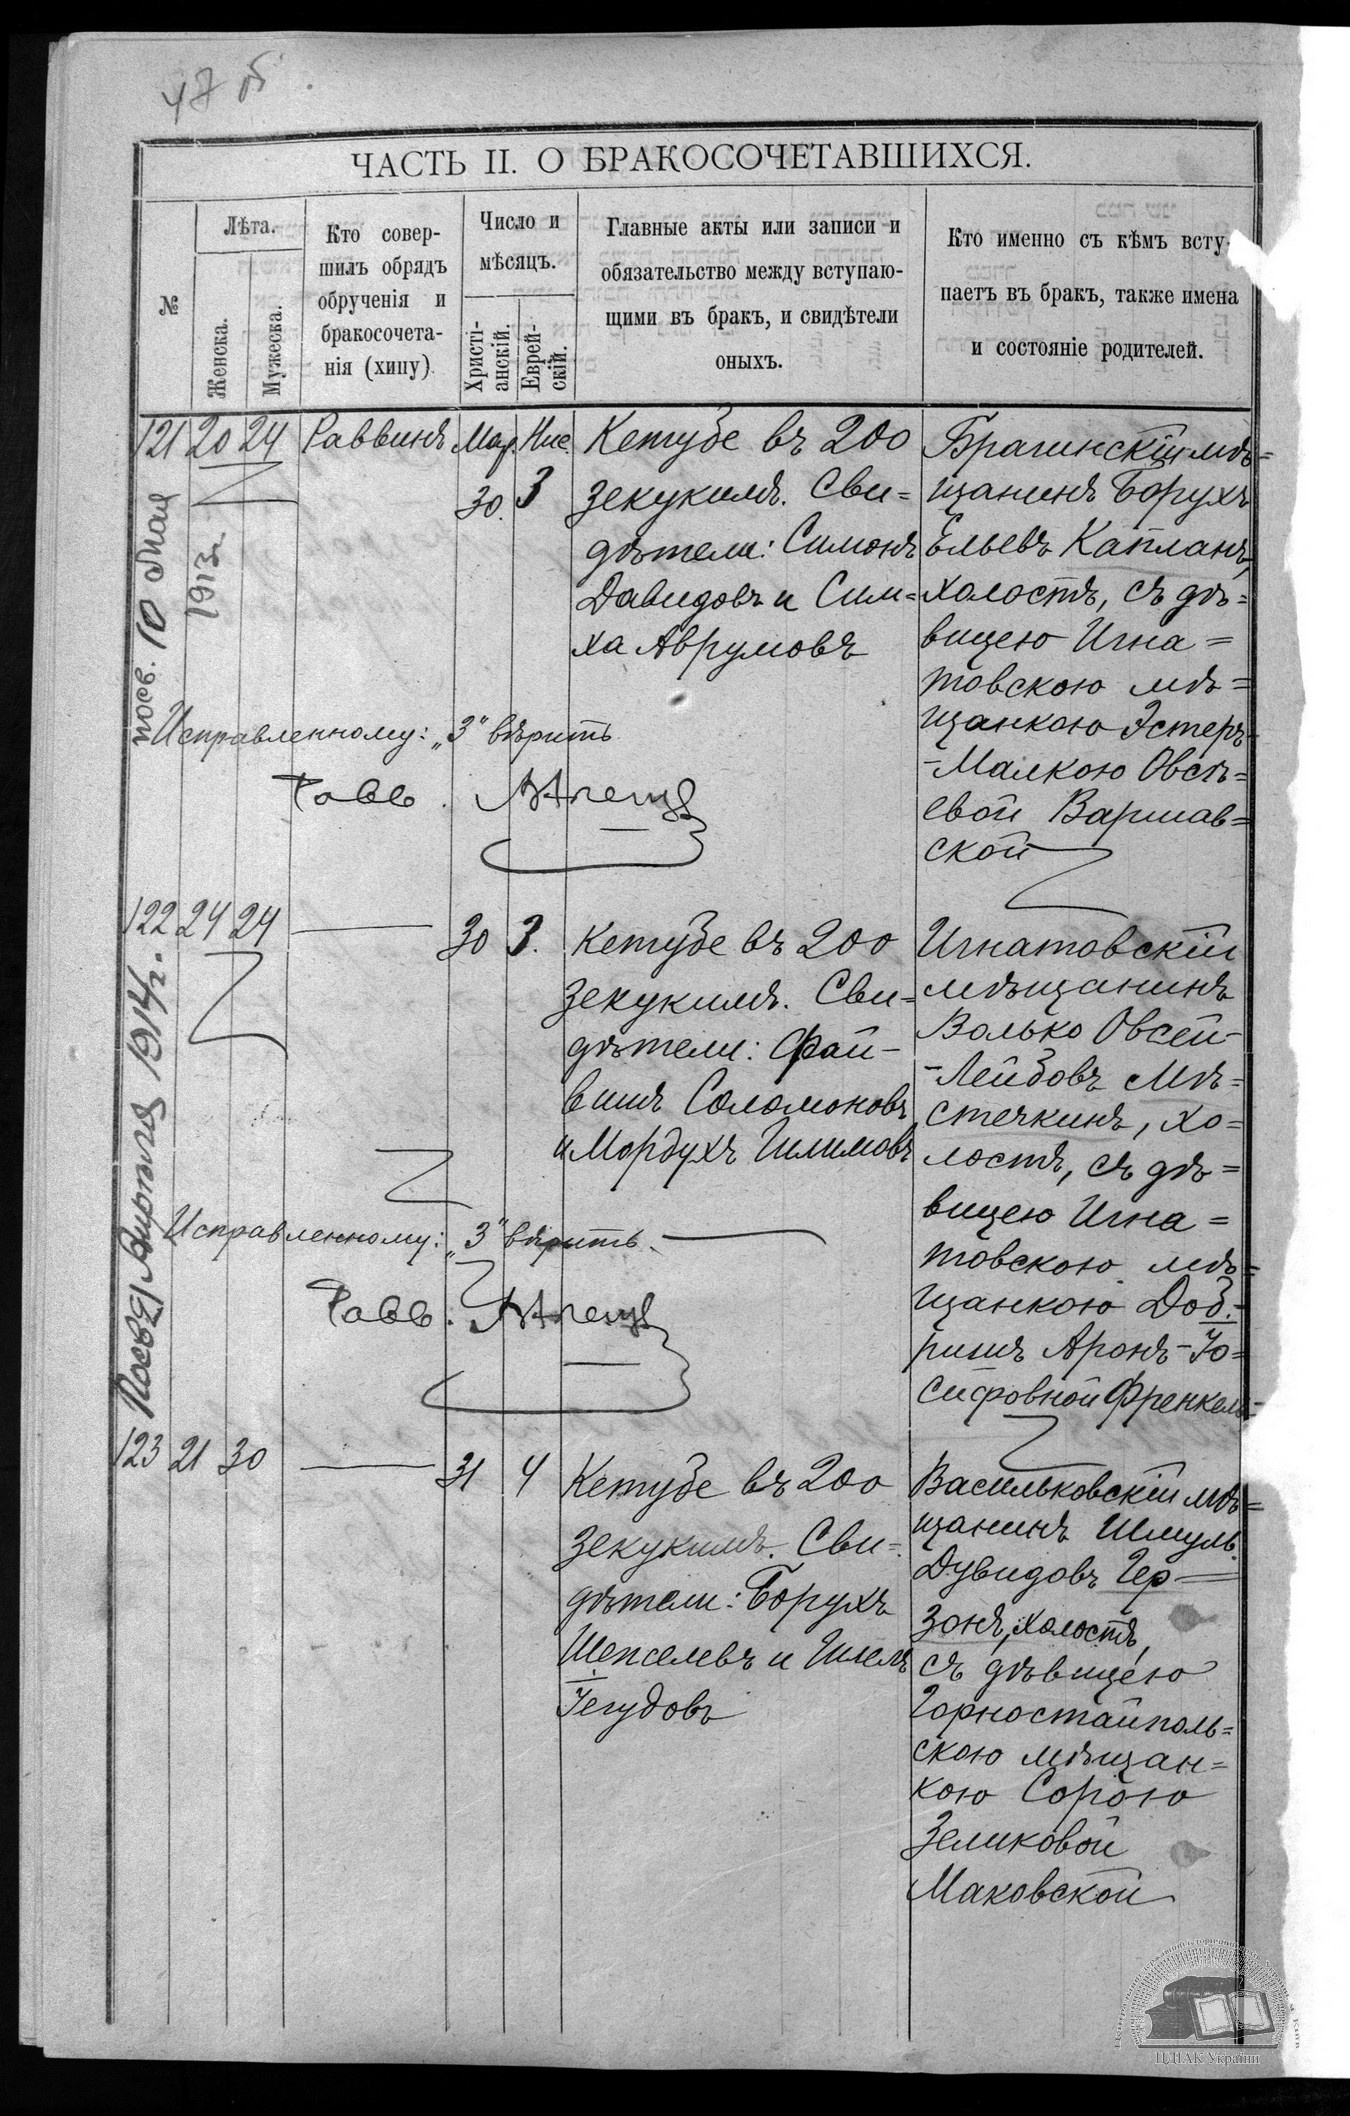 47 об.
ЧАСТЬ II. О БРАКОСОЧЕТАВШИХСЯ.
№
Лѣта.
Женска.
Мужеска.
Кто совер-
шилъ обрядъ
обрученія и
бракосочета-
нія (хипу)
Число и
мѣсяцъ.
Христі-
анскій.
Еврей-
скій.
Главные акты или записи и
обязательство между вступаю-
щими въ бракъ, и свидѣтели
оныхъ.
Кто именно съ кѣмъ всту-
паетъ въ бракъ, также имена
и состояніе родителей.
121 20 24 Раввинъ Мар. 30. Нис. 3
Кетубе въ 200
зекукимъ. Сви=
дѣтели: Симонъ
Давидовъ и Сим=
ха Аврумовъ
Брагинскій мѣ=
щанинъ Борухъ
Ельевъ Капланъ,
холостъ, съ дѣ=
вицею Игна=
товскою мѣ=
щанкою Эстеръ-
-Малкою Овсѣ=
евой Варшав=
ской
посв. 10 Мая
1913г.
Исправленному: „3" вѣрить
Равв.
122 24 24 — 30 3.
Кетубе въ 200
зекукимъ. Сви=
дѣтели: Фай-
вишъ Соломоновъ
и Мордухъ Шлимовъ
Игнатовскій
мѣщанинъ
Волько Овсей-
-Лейбовъ Мѣ=
стечкинъ, хо=
лостъ, съ дѣ=
вицею Игна=
товскою мѣ=
щанкою Доб.-
ришъ Аронъ-Іо=
сифовной Френкель
1914г.
Исправленному: „3" вѣрить.
Равв.
123 21 30 — 31 4
Кетубе въ 200
зекукимъ. Сви=
дѣтели: Борухъ
Шепселевъ и Шлемъ
Іегудовъ
Васильковскій мѣ=
щанинъ Шмуль
Дувидовъ Гер=
зонъ, холостъ,
съ дѣвицею
Горностайполь=
скою мѣщан=
кою Сорою
Зеликовой
Маковской
ЦДІАК України